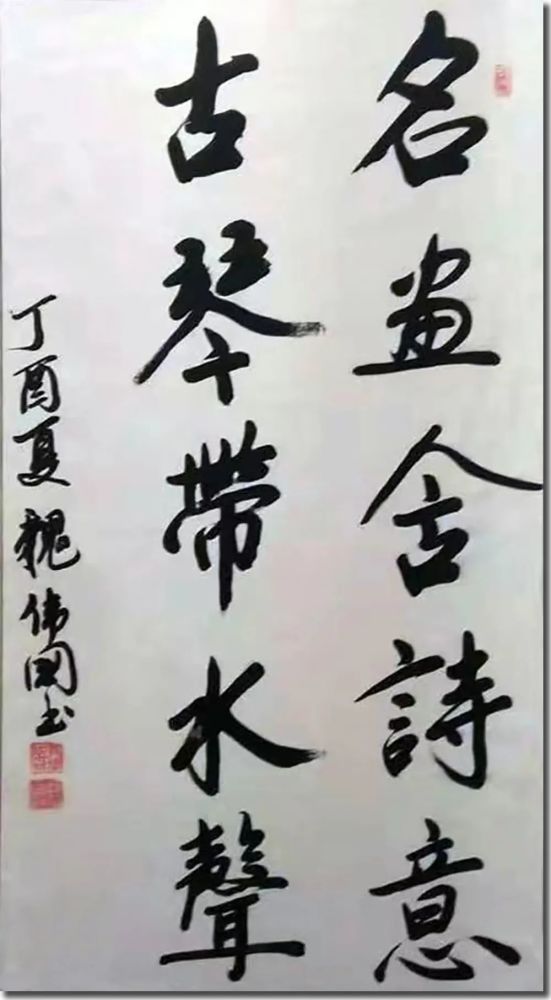 名畫含詩意
古琴帶水聲
丁酉夏魏伟國书